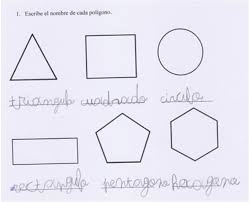 1. Escribe el nombre de cada polígono.
triangulo cuadrado circulo
rectangulo pentagono hexagono